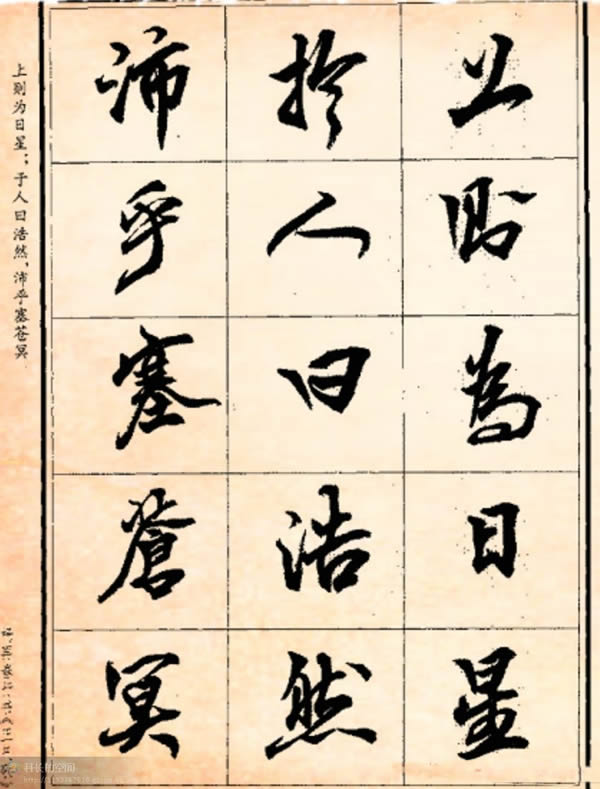 上則為日星
於人曰浩然
沛乎塞蒼冥
上则为日星；于人曰浩然，沛乎塞苍冥
科长的空间